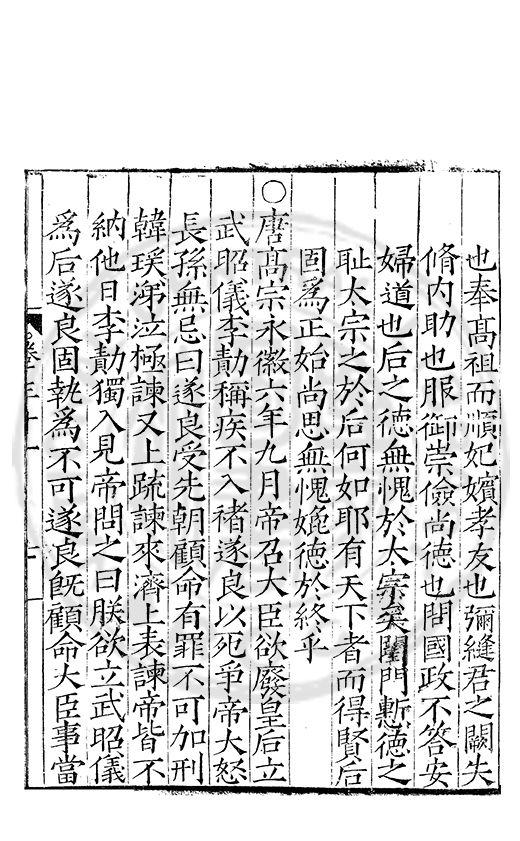 也奉髙祖而順妃嬪孝友也彌縫君之闕失
脩内助也服御崇儉尚德也問國政不答安
婦道也后之德無愧於太宗矣閨門慙德之
耻太宗之於后何如耶有天下者而得賢后
固爲正始尚思無愧娩德於終乎
○唐髙宗永徽六年九月帝召大臣欲廢皇后立
武昭儀李勣稱疾不入禇遂良以死爭帝大怒
長孫無忌曰遂良受先朝顧命有罪不可加刑
韓瑗涕泣極諫又上䟽諫來濟上表諫帝皆不
納他日李勣獨入見帝問之曰朕欲立武昭儀
爲后遂良固執爲不可遂良既顧命大臣事當
卷二十一